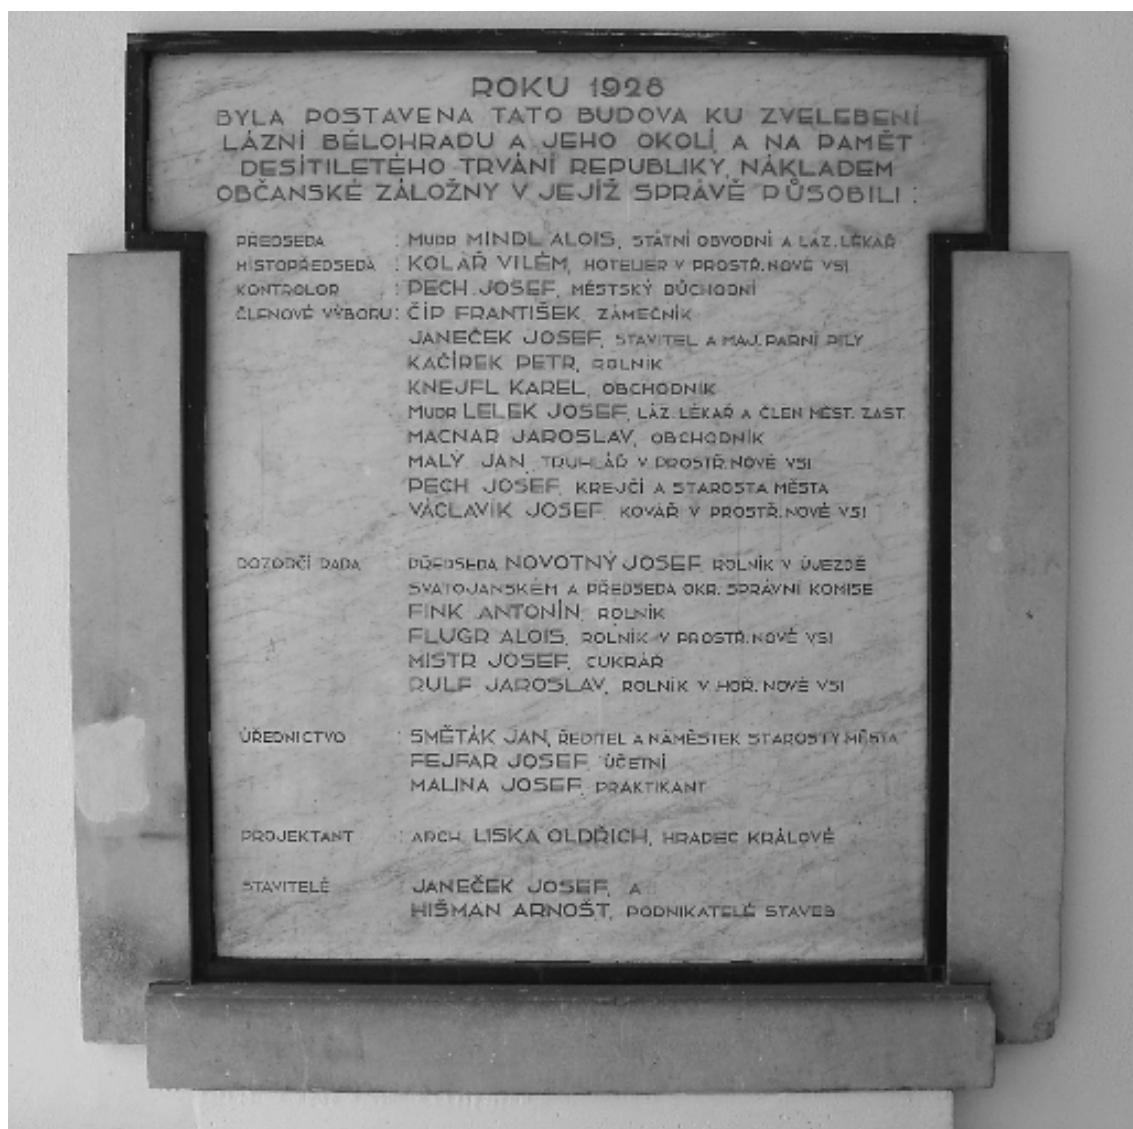 ROKU 1928
BYLA POSTAVENA TATO BUDOVA KU ZVELEBENÍ
LÁZNÍ BĚLOHRADU A JEHO OKOLÍ A NA PAMĚT
DESÍTILETÉHO TRVÁNÍ REPUBLIKY, NÁKLADEM
OBČANSKÉ ZÁLOŽNY V JEJÍŽ SPRÁVĚ PŮSOBILI :
PŘEDSEDA : MUDR MINDL ALOIS, STÁTNÍ OBVODNÍ A LÁZ. LÉKAŘ
MÍSTOPŘEDSEDA : KOLÁŘ VILÉM, HOTELIER V PROSTŘ. NOVÉ VSI
KONTROLOR : PECH JOSEF, MĚSTSKÝ DŮCHODNÍ
ČLENOVÉ VÝBORU : ČÍP FRANTIŠEK, ZÁMEČNÍK
JANEČEK JOSEF, STAVITEL A MAJ. PARNÍ PILY
KAČÍREK PETR, ROLNÍK
KNEJFL KAREL, OBCHODNÍK
MUDR LELEK JOSEF, LÁZ. LÉKAŘ A ČLEN MĚST. ZAST.
MACNAR JAROSLAV, OBCHODNÍK
MALÝ JAN, TRUHLÁŘ V PROSTŘ. NOVÉ VSI
PECH JOSEF, KREJČÍ A STAROSTA MĚSTA
VÁCLAVÍK JOSEF, KOVÁŘ V PROSTŘ. NOVÉ VSI
DOZORČÍ RADA PŘEDSEDA NOVOTNÝ JOSEF, ROLNÍK V ÚJEZDĚ
SVATOJANSKÉM A PŘEDSEDA OKR. SPRÁVNÍ KOMISE
FINK ANTONÍN, ROLNÍK
FLUGR ALOIS, ROLNÍK V PROSTŘ. NOVÉ VSI
MISTR JOSEF, CUKRÁŘ
RULF JAROSLAV, ROLNÍK V HOŘ. NOVÉ VSI
ÚŘEDNICTVO : SMĚTÁK JAN, ŘEDITEL A NÁMĚSTEK STAROSTY MĚSTA
FEJFAR JOSEF, ÚČETNÍ
MALINA JOSEF, PRAKTIKANT
PROJEKTANT : ARCH. LISKA OLDŘICH, HRADEC KRÁLOVÉ
STAVITELÉ JANEČEK JOSEF, A
HIŠMAN ARNOŠT, PODNIKATELÉ STAVEB